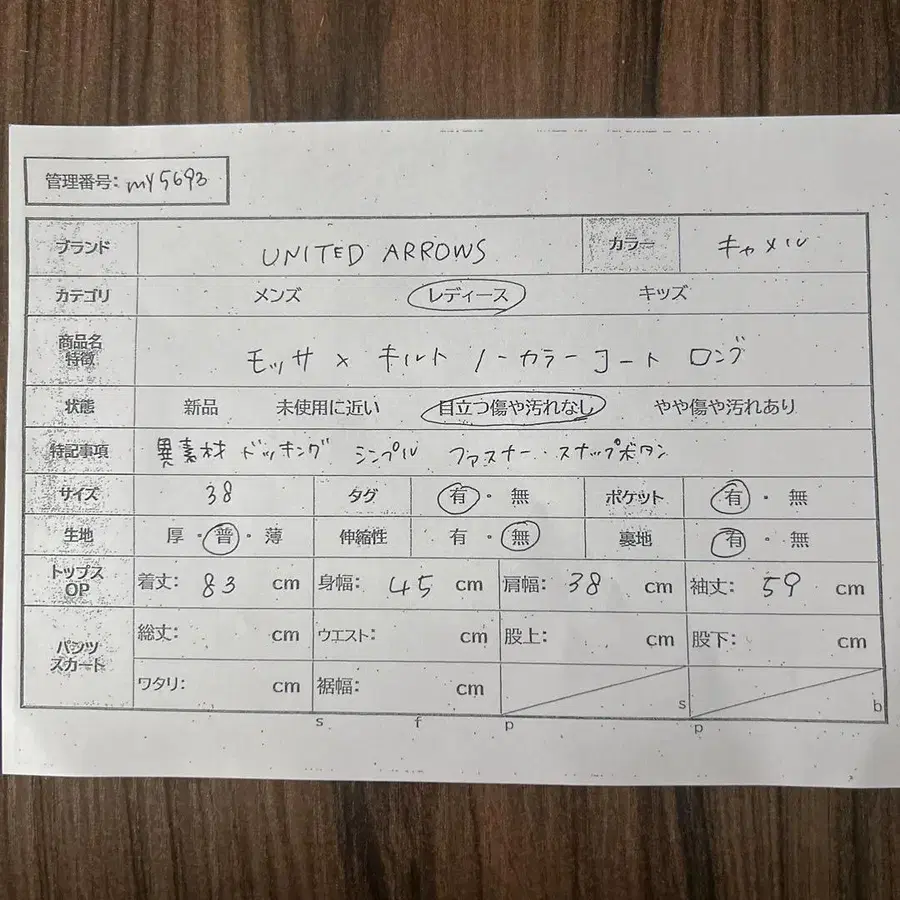 管理番号: my5693
ブランド UNITED ARROWS カラー キャメル
カテゴリ メンズ レディース キッズ
商品名
特徴 モッサ × キルト ノーカラーコート ロング
状態 新品 未使用に近い 目立つ傷や汚れなし やや傷や汚れあり
特記事項 異素材 ドッキング シンプル ファスナー・スナップボタン
サイズ 38 タグ 有・無 ポケット 有・無
生地 厚・普・薄 伸縮性 有・無 裏地 有・無
トップス
OP 着丈: 83 cm 身幅: 45 cm 肩幅: 38 cm 袖丈: 59 cm
パンツ
スカート 総丈: cm ウエスト: cm 股上: cm 股下: cm
ワタリ: cm 裾幅: cm s b
s f p p